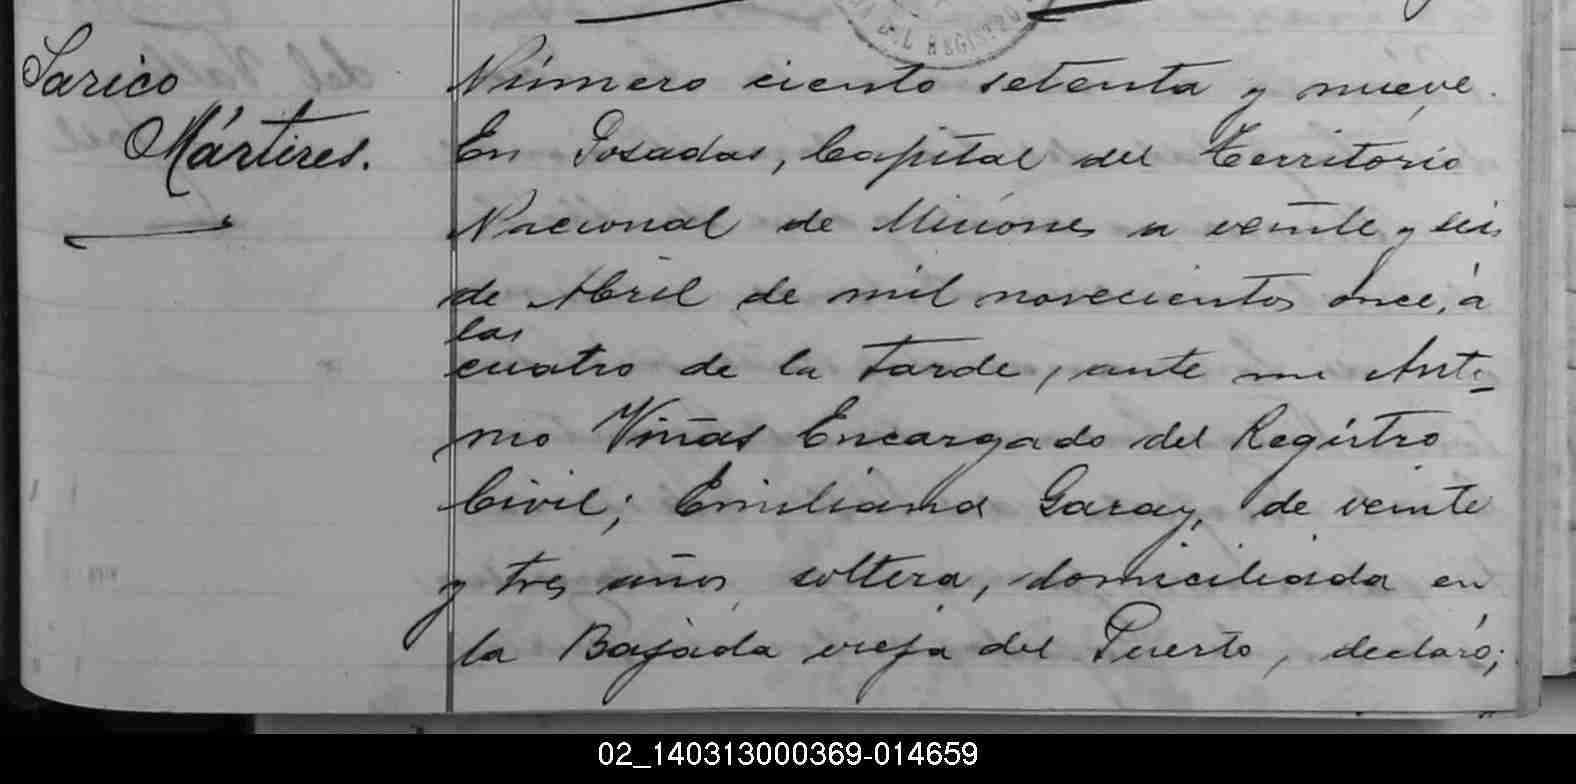 DEL REGISTRO
Sarico
Mártires.
Número ciento setenta y nueve.
En Posadas, Capital del Territorio
Nacional de Misiones a veinte y seis
de Abril de mil novecientos once, á
las
cuatro de la tarde, ante mi Ante-
mo Viñas Encargado del Registro
Civil; Emiliana Garay, de veinte
y tres años, soltera, domiciliada en
la Bajada vieja del Puerto, declaró;
02_140313000369-014659